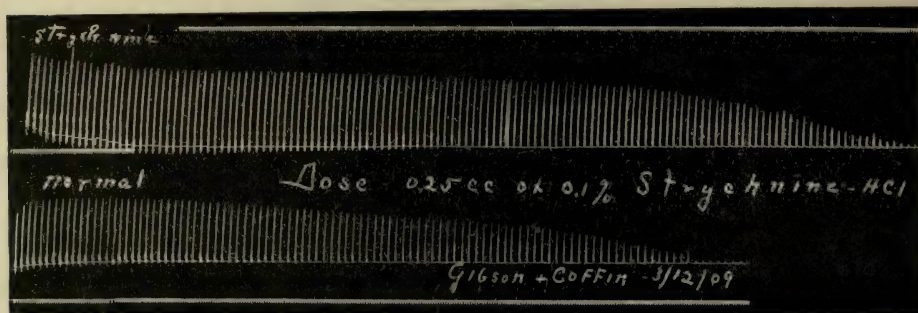 Strychnine
normal
Dose 0.25cc of 0.1% Strychnine-HCl
Gibson + Coffin 3/12/09